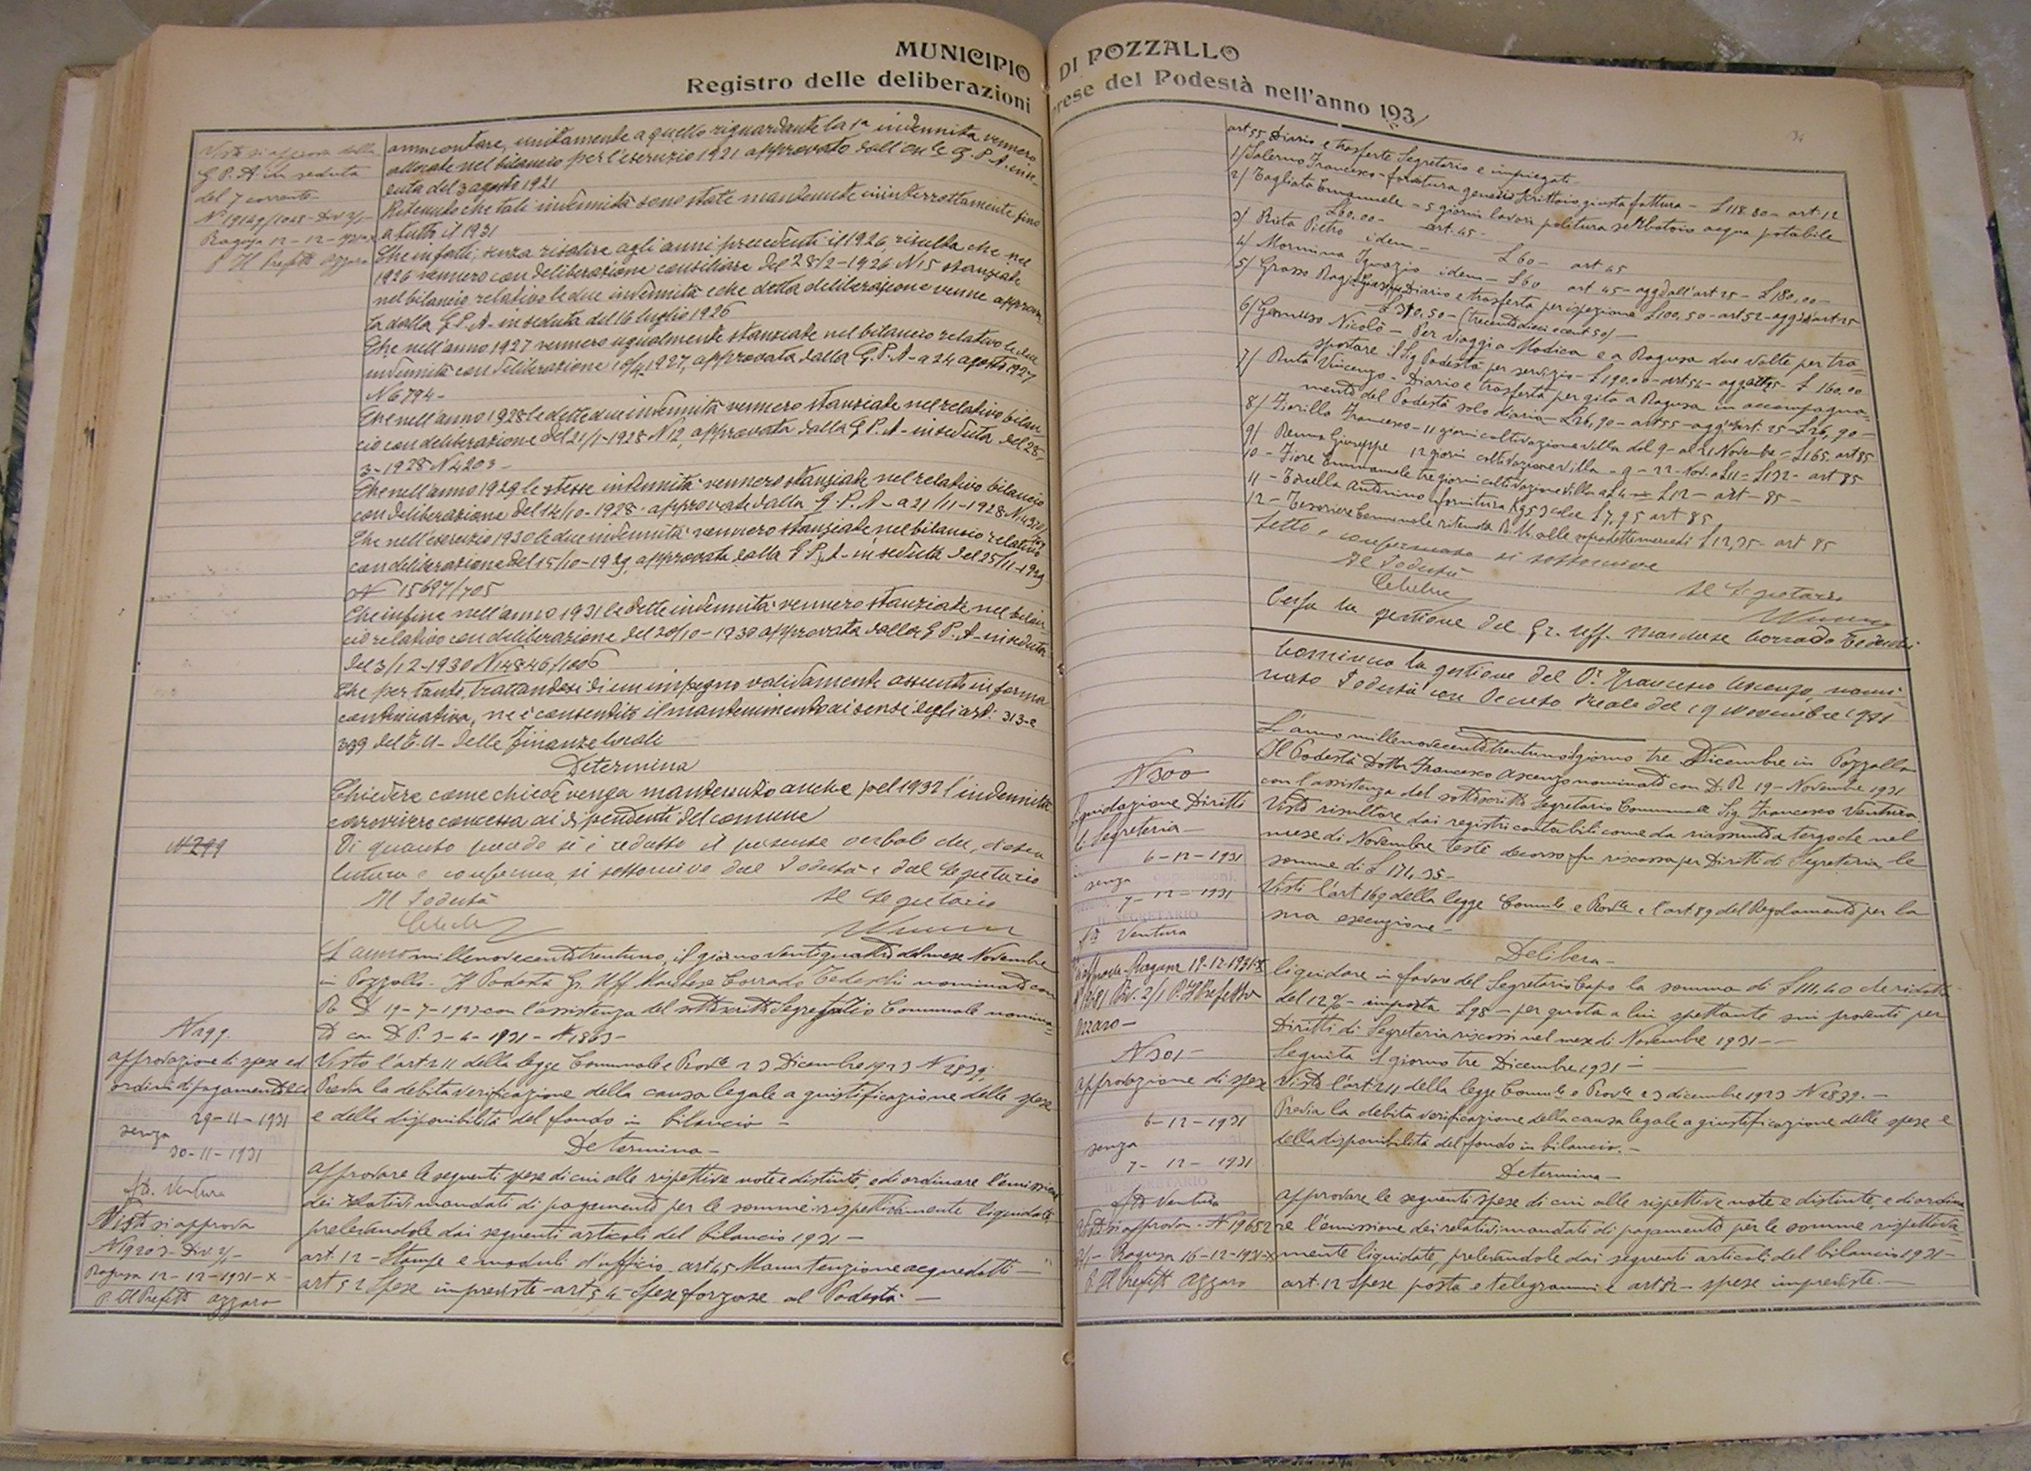 MUNICIPIO DI POZZALLO
Registro delle deliberazioni prese del Podestà nell'anno 1931
Visto si approva dalla
G P. A in seduta
del 7 corrente
Ragusa 12-12-931-X
P. Il Prefetto Azzaro
ammontare, unitamente a quello riguardante la 1a indennità vennero
allocate nel bilancio per l'esercizio 1921 approvato dall'On.le G. P. A. in se-
duta del 3 agosto 1921
Ritenuto che tali indennità sono state mantenute ininterrottamente fino
a tutto il 1931
Che infatti, senza risalire agli anni precedenti il 1926, risulta che nel
1926 vennero con deliberazione consiliare del 28/2-1926 N 15 stanziate
nel bilancio relativo le due indennità e che detta deliberazione venne approva
ta dalla G. P. A - in seduta del 16 luglio 1926
Che nell'anno 1927 vennero ugualmente stanziate nel bilancio relativo le due
indennità con deliberazione 1927, approvata dalla G. P. A - a 24 agosto 1927
N 6794-
Che nell'anno 1928 le dette due indennità vennero stanziate nel relativo bilan
cio con deliberazione del 21/1-1928 N 12, approvata dalla G. P. A - in seduta del 28-
3-1928 N 4203-
Che nell'anno 1929 le stesse indennità vennero stanziate nel relativo bilancio
con deliberazione del 14/10-1928 approvata dalla G. P. A - a 21/11-1928
Che nell'esercizio 1930 le due indennità vennero stanziate nel bilancio relativo
con deliberazione del 15/10-1929, approvata dalla G P. A - in seduta del 25/11-1929
N 15697/705
Che infine nell'anno 1931 le dette indennità vennero stanziate nel bilan
cio relativo con deliberazione del 20/10-1930 approvata dalla G P. A - in seduta
del 3/12-1930 N 14846/1006
Che per tanto, trattandosi di un impegno validamente assunto in forma
continuativa, ne è consentito il mantenimento ai sensi degli art. 313 e
399 del T. U - delle Finanze locali
Determina
Chiedere come chiede venga mantenuto anche pel 1932 l'indennità
caroviveri concessa ai dipendenti del comune
N 299
Di quanto precede si è redatto il presente verbale che, di esso
lettura e conferma, si sottoscrive dal Podestà e dal Segretario
Il Podestà Il Segretario
L'anno millenovecentotrentuno, il giorno ventiquattro del mese Novembre
in Pozzallo - Il Podestà Gr. Uff Marchese Corrado Tedeschi nominato con
R D 19-7-1927 con l'assistenza del sottoscritto Segretario Comunale nomina-
to con D P. 3-6-1931 - N 1863-
N 299.
approvazione di spese ed
ordini di pagamento ecc
29-11-1931
senza
30-11-1931
fto. Ventura
Visto si approva
N 19203- Div 2/-
Ragusa 12-12-1931-X-
P. Il Prefetto Azzaro
Visto l'art 211 della legge Comunale e Prov.le 23 Dicembre 1923 N 2839;
Previa la debita verificazione della causa legale a giustificazione delle spese
e della disponibilità del fondo in bilancio -
Determina -
Approvare le seguenti spese di cui alle rispettive note e distinte, e di ordinare l'emissione
dei relativi mandati di pagamento per le somme rispettivamente liquidate,
prelevandole dai seguenti articoli del bilancio 1931 -
art. 12 - Stampe e moduli d'ufficio - art 45 Manutenzione acquedotti -
art 52 Spese impreviste - art 54 - Spese forzose al Podestà -
art 55 Diarie e trasferte Segretario e impiegati -
1/ Salerno Francesco - fornitura generi Scrittoio giusta fattura - £ 118.80 - art. 12
2/ Tagliata Emanuele - 5 giorni lavori pulitura serbatoio acqua potabile
£ 60.00 - art. 45 -
3/ Ruta Pietro idem - £ 60 - art 45
4/ Mormina Ignazio idem - £ 60 art 45 - agg dall'art 25 - £ 180,00 -
5/ Grasso Rag. Diario e trasferta per ispezione £ 100,50 - art 52 - agg art 25
£ 310.50 - (trecentodieci e cent 50) -
6/ Gennuso Nicolò - Per viaggi a Modica e a Ragusa due volte per tra-
sportare il Sig Podestà per servizio - £ 190.00 - art 54 - agg art 25 £ 160.00
7/ Ruta Vincenzo - Diario e trasferta per gita a Ragusa in accompagna-
mento del Podestà solo diaria - £ 26,90 - art 55 - agg art. 25 - £ 26,90 -
8/ Fiorilla Francesco - 11 giorni coltivazione villa dal 9 - al 21 Novembre - £ 165. art 85
9/ Renna Giuseppe 12 giorni coltivazione villa - 9 - 22 - Nov. a £ 11 = £ 132 - art 85
10 - Fiore Emmanuele tre giorni coltivazione villa a £ 4 - £ 12 - art - 85 -
12 - Tesoriere Comunale ritenuta R. M. alle sopradette mercedi £ 12,35 - art 85
Letto, e confermato si sottoscrive
Il Podestà Il Segretario
Cessa la gestione del Gr. Uff. Marchese Corrado Tedeschi
Comincia la gestione del Dr. Francesco Ascenzo nomi-
nato Podestà con Decreto Reale del 19 Novembre 1931
N 300
liquidazione Diritti
di Segreteria -
6-12-1931
senza opposizioni.
7-12-1931
IL SEGRETARIO
fto Ventura
L'anno millenovecentotrentuno il giorno tre Dicembre in Pozzallo
Il Podestà Dottor Francesco Ascenzo nominato con D. R 19 - Novembre 1931
con l'assistenza del sottoscritto Segretario Comunale Sig. Francesco Ventura
Visto risultare dai registri contabili come da riassunto a tergo che nel
mese di Novembre testè decorso fu riscossa per Diritti di Segreteria la
somma di £ 174,35 -
Visti l'art 169 della legge Comunle e Prov.le e l'art. 59 del Regolamento per la
sua esecuzione -
Delibera -
Si approva - Ragusa 19-12-1931-X
Div. 2/1 P. Il Prefetto
Azzaro -
liquidare in favore del Segretario Capo la somma di £ 111,40 che ridotta
del 12% - importa £ 98 - per quota a lui spettante sui proventi per
Diritti di Segreteria riscossi nel mese di Novembre 1931 -
N 301 -
approvazione di spese
6-12-1931
senza
7-12-1931
IL SEGRETARIO
fto Ventura
Visto si approva - N 19652
2/- Ragusa 16-12-1931-X
P. Il Prefetto Azzaro
Seguita il giorno tre Dicembre 1931 -
Visto l'art 211 della legge Comunle e Prov.le 23 dicembre 1923 N 2839. -
Previa la debita verificazione della causa legale a giustificazione delle spese e
della disponibilità del fondo in bilancio. -
Determina -
approvare le seguenti spese di cui alle rispettive note e distinte, e di ordina
re l'emissione dei relativi mandati di pagamento per le somme rispettiva-
mente liquidate, prelevandole dai seguenti articoli del bilancio 1931 -
art. 12 Spese posta e telegrammi e art 52 - spese impreviste. -